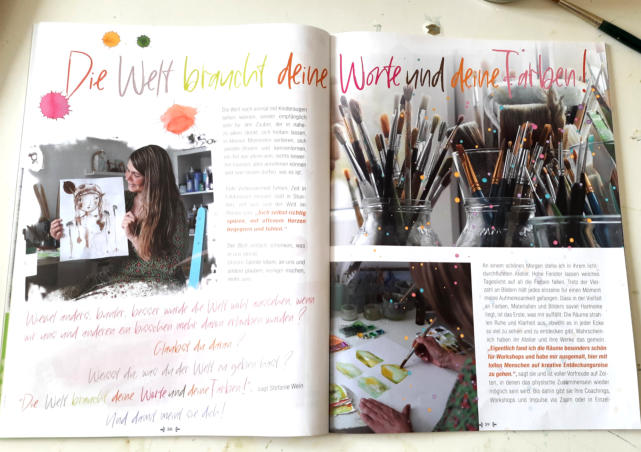 Die Welt braucht deine Worte und deine Farben!
Die Welt noch einmal mit Kinderaugen
sehen können, wieder empfänglich
sein für den Zauber, der in nahe-
zu allem steckt, sich treiben lassen,
in kleinen Momenten verlieren, sich
wieder finden und kennenlernen,
"Sich selbst richtig
spüren, mit offenem Herzen
begegnen und fühlen."
Wieviel anders, bunter, besser würde die Welt wohl aussehen, wenn
wir uns und anderen ein bisschen mehr davon erlauben würden?
Glaubst du daran?
Weisst du, was du der Welt zu geben hast?
"Die Welt braucht deine Worte und deine Farben!", sagt Stefanie Wein
Und damit meint sie dich!
38
An einem schönen Morgen stehe ich in ihrem licht-
durchfluteten Atelier. Hohe Fenster lassen weiches
Tageslicht auf all die Farben fallen. Trotz der Viel-
zahl an Bildern hält jedes einzelne für einen Moment
meine Aufmerksamkeit gefangen. Dass in der Vielfalt
an Farben, Materialien und Bildern soviel Harmonie
liegt, ist das Erste, was mir auffällt. Die Räume strah-
len Ruhe und Klarheit aus, obwohl es in jeder Ecke
so viel zu sehen und zu entdecken gibt. Wahrschein-
lich haben ihr Atelier und ihre Werke das gemein.
"Eigentlich fand ich die Räume besonders schön
für Workshops und habe mir ausgemalt, hier mit
tollen Menschen auf kreative Entdeckungsreise
zu gehen.", sagt sie und ist voller Vorfreude auf Zei-
ten, in denen das physische Zusammensein wieder
möglich sein wird. Bis dahin gibt sie ihre Coachings,
Workshops und Impulse via Zoom oder in Einzel-
39